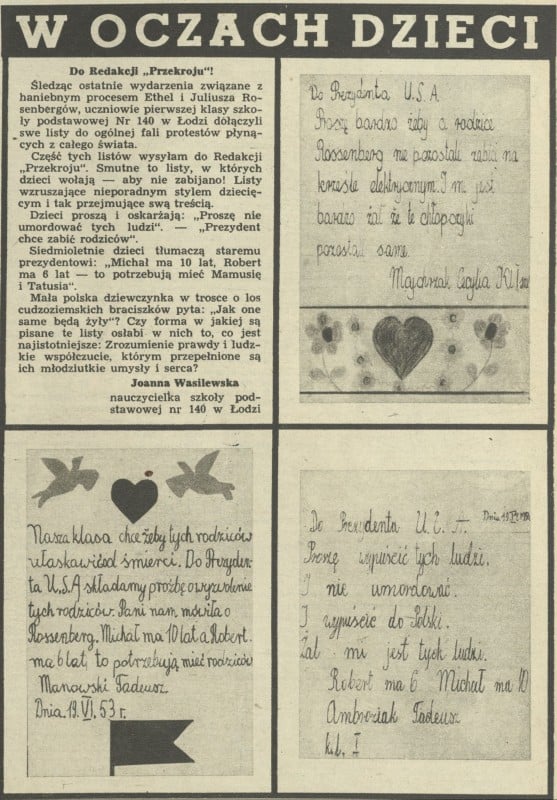 W OCZACH DZIECI
Do Redakcji „Przekroju"!
Śledząc ostatnie wydarzenia związane z
haniebnym procesem Ethel i Juliusza Ro-
senbergów, uczniowie pierwszej klasy szko-
ły podstawowej Nr 140 w Łodzi dołączyli
swe listy do ogólnej fali protestów płyną-
cych z całego świata.
Część tych listów wysyłam do Redakcji
„Przekroju". Smutne to listy, w których
dzieci wołają — aby nie zabijano! Listy
wzruszające nieporadnym stylem dziecię-
cym i tak przejmujące swą treścią.
Dzieci proszą i oskarżają: „Proszę nie
umordować tych ludzi". — „Prezydent
chce zabić rodziców".
Siedmioletnie dzieci tłumaczą staremu
prezydentowi: „Michał ma 10 lat, Robert
ma 6 lat — to potrzebują mieć Mamusię
i Tatusia".
Mała polska dziewczynka w trosce o los
cudzoziemskich braciszków pyta: „Jak one
same będą żyły"? Czy forma w jakiej są
pisane te listy osłabi w nich to, co jest
najistotniejsze: Zrozumienie prawdy i ludz-
kie współczucie, którym przepełnione są
ich młodziutkie umysły i serca?
Joanna Wasilewska
nauczycielka szkoły pod-
stawowej nr 140 w Łodzi
Do Prezydenta U.S.A
Proszę bardzo żeby a rodzice
Rossenberg nie pozostali zabici na
krześle elektrycznym. I mi jest
bardzo żal że te chłopczyki
pozostali same.
Majchrzak Cecylia Kl I
Nasza klasa chce żeby tych rodziców
ułaskawić od śmierci. Do Prezyden-
ta U.S.A składamy prożbę o wyzwolenie
tych rodziców. Pani nam mówiła o
Rossenberg. Michał ma 10 lat a Robert
ma 6 lat, to potrzebują mieć rodziców
Manowski Tadeusz
Dnia. 19. VI. 53 r.
Do Prezydenta U. S. A Dnia 19
Proszę wypuścić tych ludzi.
I nie umordować.
I wypuścić do Polski.
Żal mi jest tych ludzi.
Robert ma 6 Michał ma 10
Ambroziak Tadeusz
kl. I